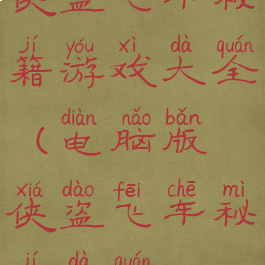 侠盗飞车秘
jí yóu xì dà quán
籍游戏大全
diàn nǎo bǎn
(电脑版
xiá dào fēi chē mì
侠盗飞车秘
jí dà quán